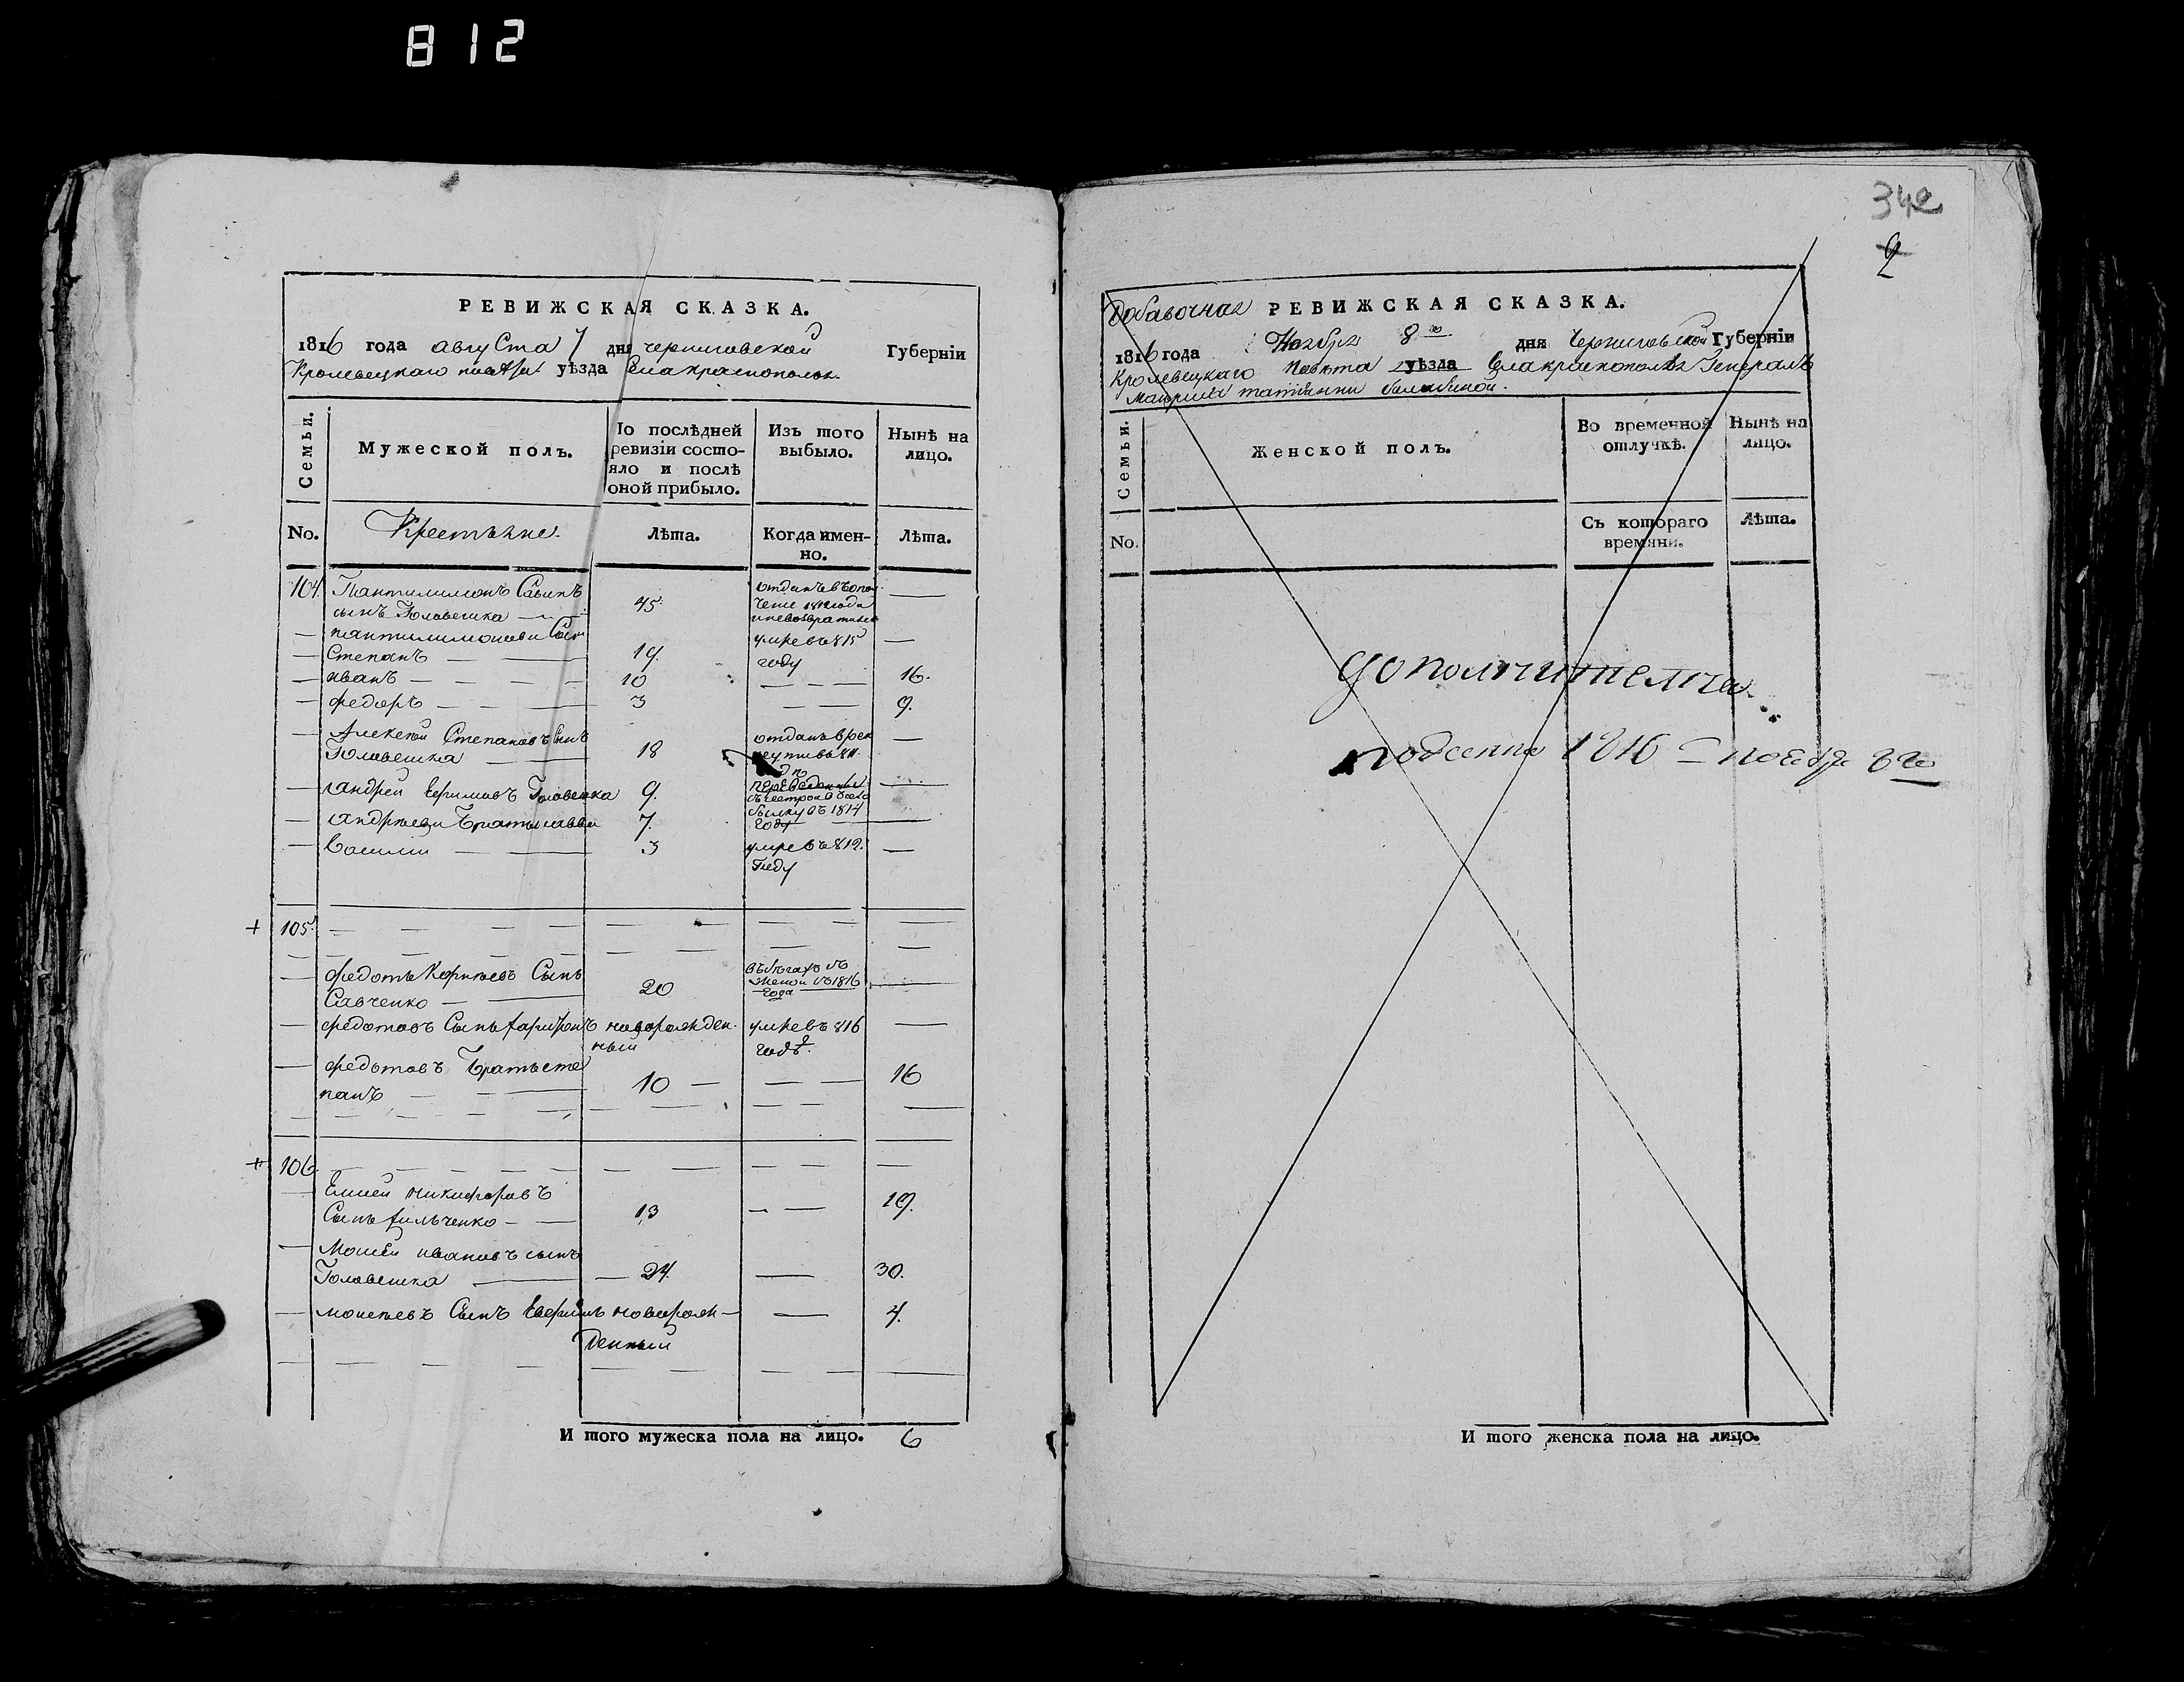 812
РЕВИЖСКАЯ СКАЗКА.
1816 года августа 7 дня черниговской Губерніи
Кролевецкаго повѣта уѣзда Села краснополья
Семьи.
Мужеской полъ.
По послѣдней ревизіи состо-
яло и послѣ
оной прибыло.
Изъ того
выбыло.
Нынѣ на
лицо.
No. Крестьяне. Лѣта. Когда имен-
но. Лѣта.
104. Пантилимонъ Савинъ
сынъ Головешка 45. отданъ въ опол
чение 1812 года
и невозвратился
пантилимонови Сыни
Степанъ 19. умре въ 815
году
иванъ 10 16.
федоръ 3 9.
Алексей Степановъ Сынъ
Головешка 18 отданъ в рек
руты въ 811
андрей Ефимовъ Головешка 9.
андреевы Братья 7. 1814
году
Василий 3 умре въ 812.
году
105.
федотъ Корнѣевъ Сынъ
Савченко 20 въ бѣгахъ съ
женой съ 1816
года
федотовъ Сынъ харитонъ новорожден-
ный умре въ 816
годѣ.
федотовъ Братъ сте
панъ 10 16
106.
Елисей никифоровъ
Сынъ фильченко 13 19.
Мосей ивановъ сынъ
Головешка 24. 30.
мосеевъ Сынъ Ефимъ новорож-
денный 4.
И того мужеска пола на лицо. 6
342
2
Добавочная РЕВИЖСКАЯ СКАЗКА.
1816 года Ноября 8го дня Черниговской Губерніи
Кролевецкаго Повѣта уѣзда Села краснополья Генералъ
Маиорши татиянны
Семьи.
Женской полъ.
Во временной
отлучкѣ.
Нынѣ на
лицо.
No.
Съ котораго
времяни.
Лѣта.
дополнителная
подсенна 1816 ноября 8го
И того женска пола на лицо.